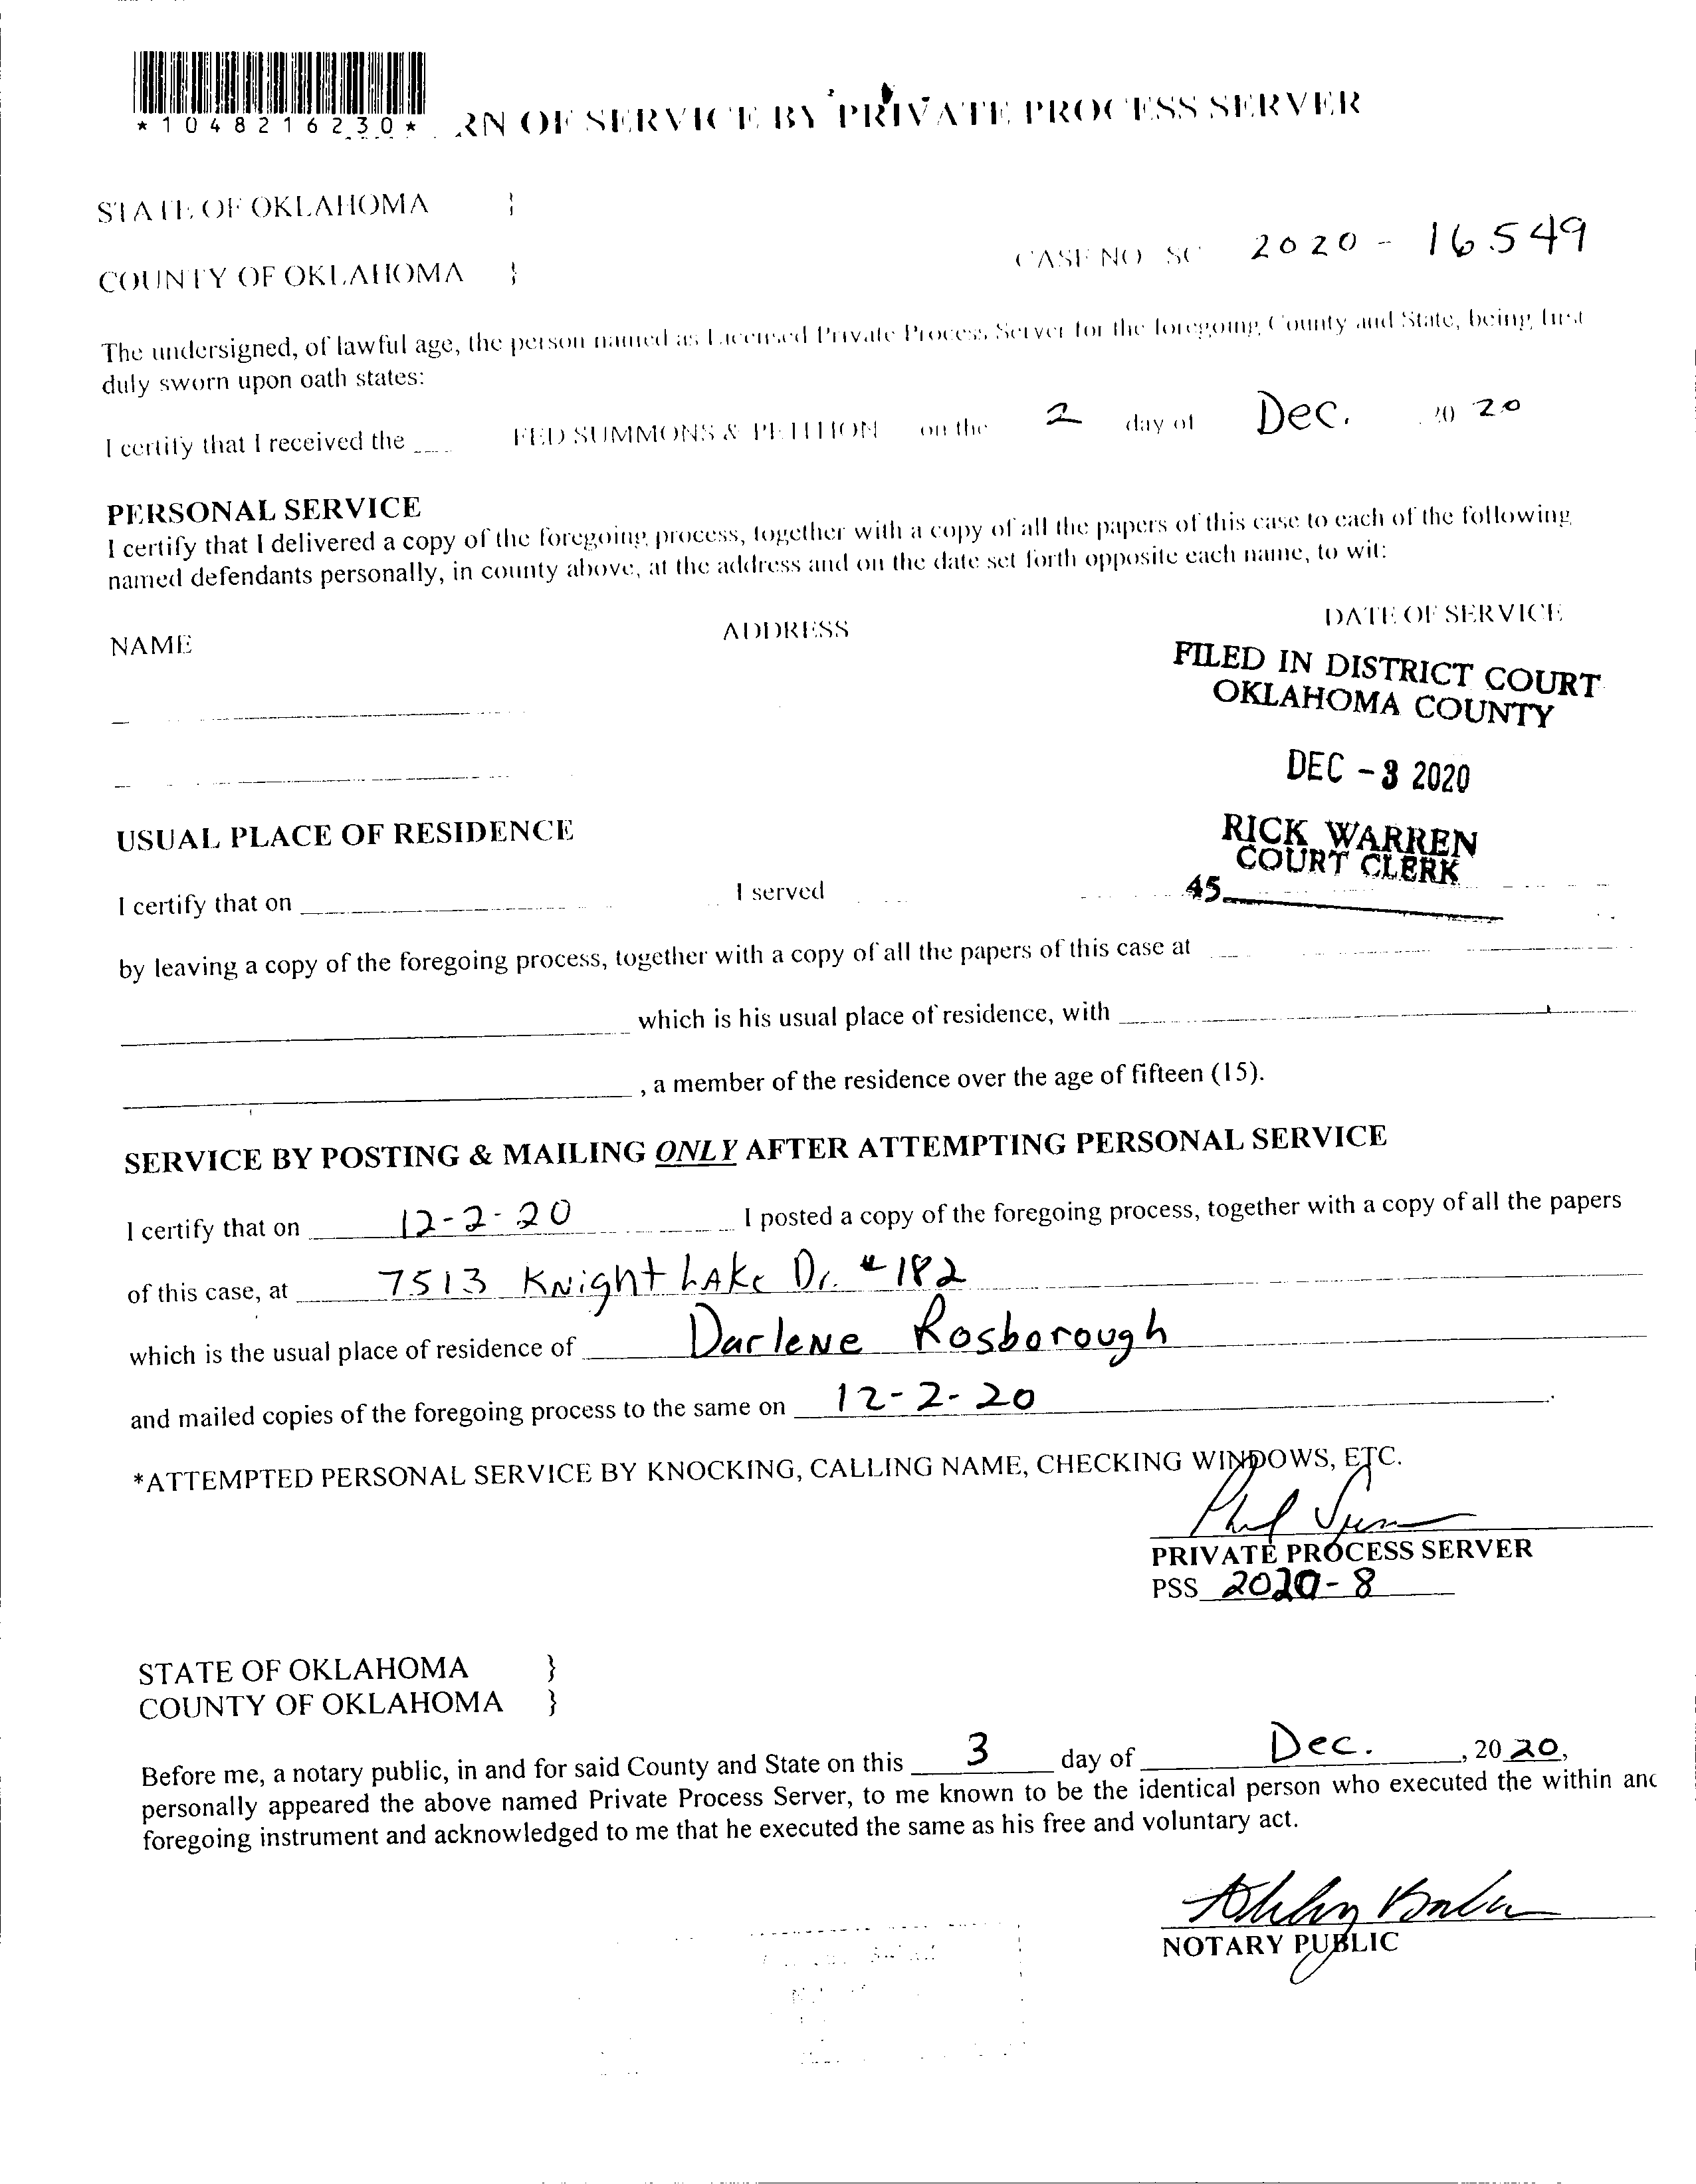 *1048216230*
RN OF SERVICE BY PRIVATE PROCESS SERVER
STATE OF OKLAHOMA }
COUNTY OF OKLAHOMA }
CASE NO SC 2020 - 16549
The undersigned, of lawful age, the person named as Licensed Private Process Server for the foregoing County and State, being first
duly sworn upon oath states:
I certify that I received the FED SUMMONS & PETITION on the 2 day of Dec. 20 20
PERSONAL SERVICE
I certify that I delivered a copy of the foregoing process, together with a copy of all the papers of this case to each of the following
named defendants personally, in county above, at the address and on the date set forth opposite each name, to wit:
NAME ADDRESS DATE OF SERVICE
FILED IN DISTRICT COURT
OKLAHOMA COUNTY
DEC -3 2020
RICK WARREN
COURT CLERK
45
USUAL PLACE OF RESIDENCE
I certify that on I served
by leaving a copy of the foregoing process, together with a copy of all the papers of this case at
which is his usual place of residence, with
, a member of the residence over the age of fifteen (15).
SERVICE BY POSTING & MAILING ONLY AFTER ATTEMPTING PERSONAL SERVICE
I certify that on 12-2-20 I posted a copy of the foregoing process, together with a copy of all the papers
of this case, at 7513 Knight Lake Dr. #182
which is the usual place of residence of Darlene Rosborough
and mailed copies of the foregoing process to the same on 12-2-20.
*ATTEMPTED PERSONAL SERVICE BY KNOCKING, CALLING NAME, CHECKING WINDOWS, ETC.
PRIVATE PROCESS SERVER
PSS 2020-8
STATE OF OKLAHOMA }
COUNTY OF OKLAHOMA }
Before me, a notary public, in and for said County and State on this 3 day of Dec. , 20 20,
personally appeared the above named Private Process Server, to me known to be the identical person who executed the within and
foregoing instrument and acknowledged to me that he executed the same as his free and voluntary act.
NOTARY PUBLIC